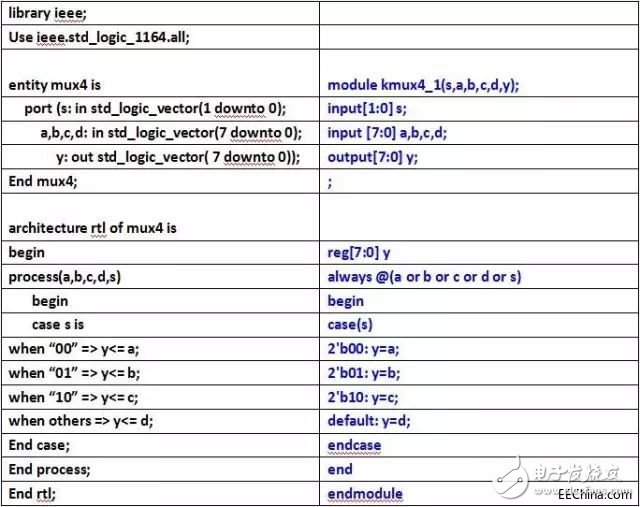 library ieee;
Use ieee.std_logic_1164.all;
entity mux4 is module kmux4_1(s,a,b,c,d,y);
port (s: in std_logic_vector(1 downto 0); input[1:0] s;
a,b,c,d: in std_logic_vector(7 downto 0); input [7:0] a,b,c,d;
y: out std_logic_vector( 7 downto 0)); output[7:0] y;
End mux4; ;
architecture rtl of mux4 is
begin reg[7:0] y
process(a,b,c,d,s) always @(a or b or c or d or s)
begin begin
case s is case(s)
when “00” => y<= a; 2'b00: y=a;
when “01” => y<= b; 2'b01: y=b;
when “10” => y<= c; 2'b10: y=c;
when others => y<= d; default: y=d;
End case; endcase
End process; end
End rtl; endmodule
电子发烧友
EEChina.com